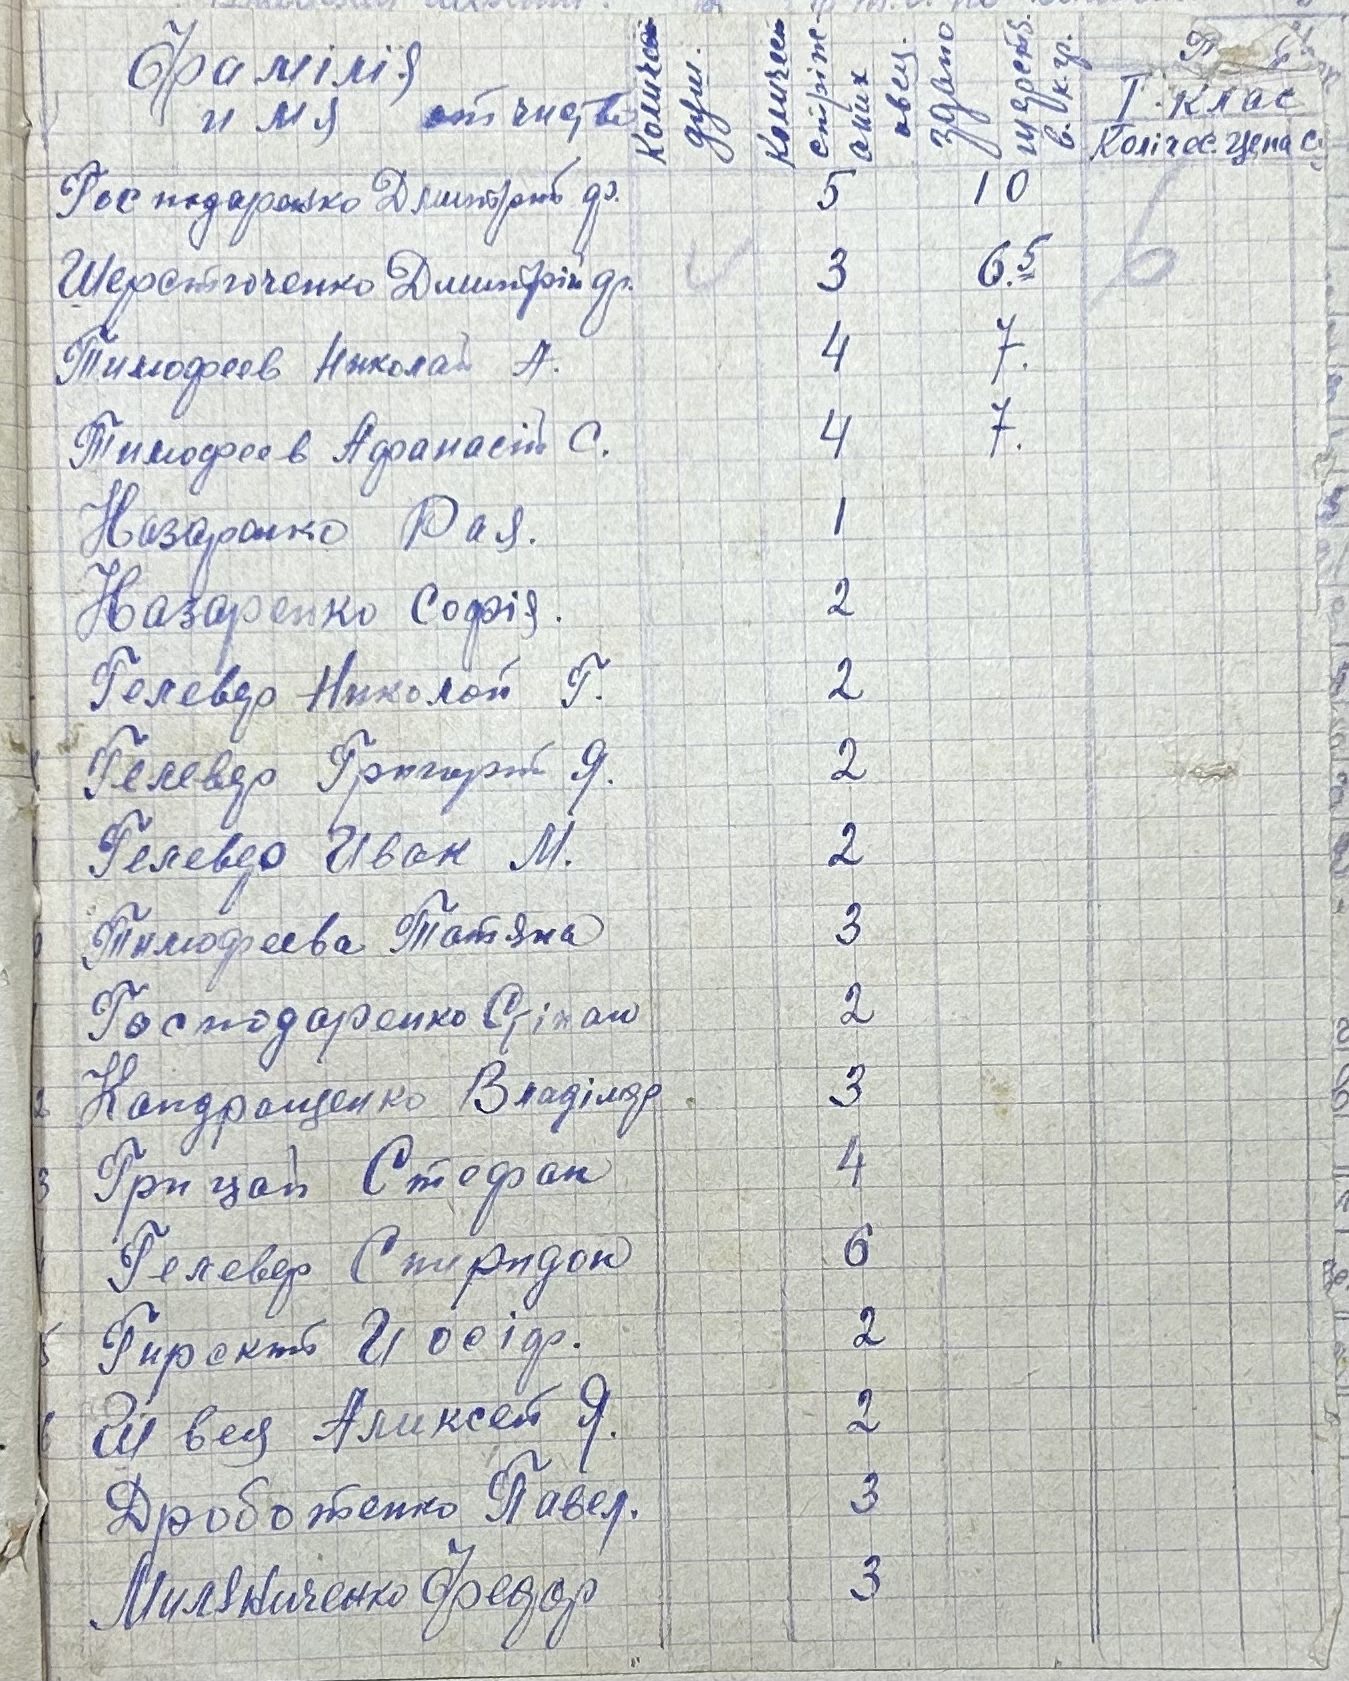 Фамілія
и мя отчиство
Количес душ.
Количес стріже аних овец.
здано шерсті в. к.гр.
I. клас
Колічес. цена с
Господаренко Дмитрій др. 5 10
Шерстюченко Дмитрій др. 3 6.5
Тимофеев Николай А. 4 7.
Тимофеев Афанасій С. 4 7.
Назаренко Рая. 1
Назаренко Софія. 2
Гелевер Николай Г. 2
Гелевер Григорій Я. 2
Гелевер Иван М. 2
Тимофеева Татяна 3
Господаренко Стіпан 2
2 Кандращенко Владімир 3
3 Грицай Стефан 4
Гелевер Спиридон 6
5 Иосіф. 2
6 Швец Аликсей Я. 2
Дроботенко Павел. 3
Милянниченко Федор 3